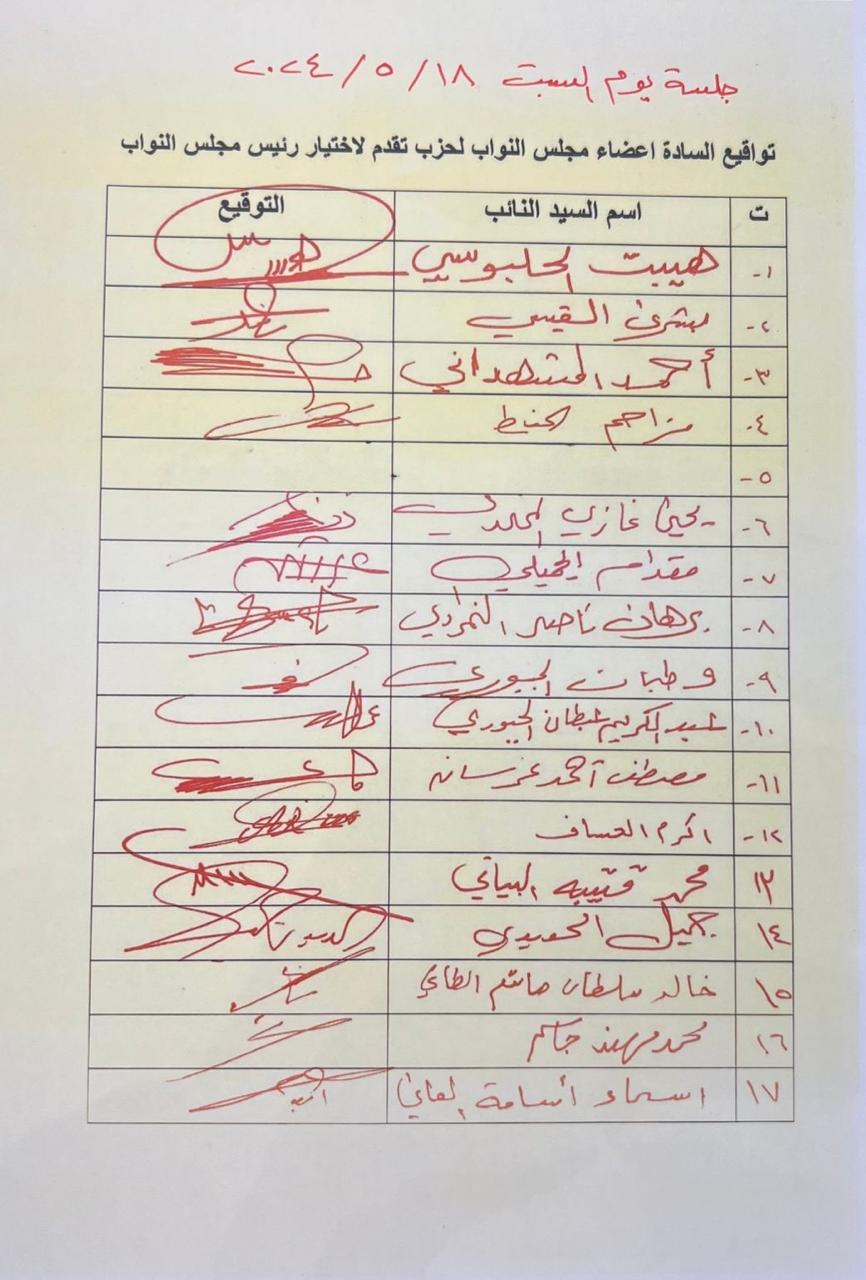 جلسة يوم السبت ١٨/٥/٢٠٢٤
تواقيع السادة اعضاء مجلس النواب لحزب تقدم لاختيار رئيس مجلس النواب
ت اسم السيد النائب التوقيع
١- هيبت الحلبوسي
٢- بشرى القيسي
٣- أحمد المشهداني
٤- مزاحم الخياط
٥-
٦- يحيى غازي المحمدي
٧- مقدام الجميلي
٨- برهان ناصر النمراوي
٩- وطبان الجبوري
١٠- عبد الكريم عبطان الجبوري
١١- مصطفى احمد عرسان
١٢- اكرم العساف
١٣ محمد قتيبه البياتي
١٤ جميل
١٥ خالد سلطان هاشم الطائي
١٦ محمد مهند جاسم
١٧ اسماء أسامة العاني